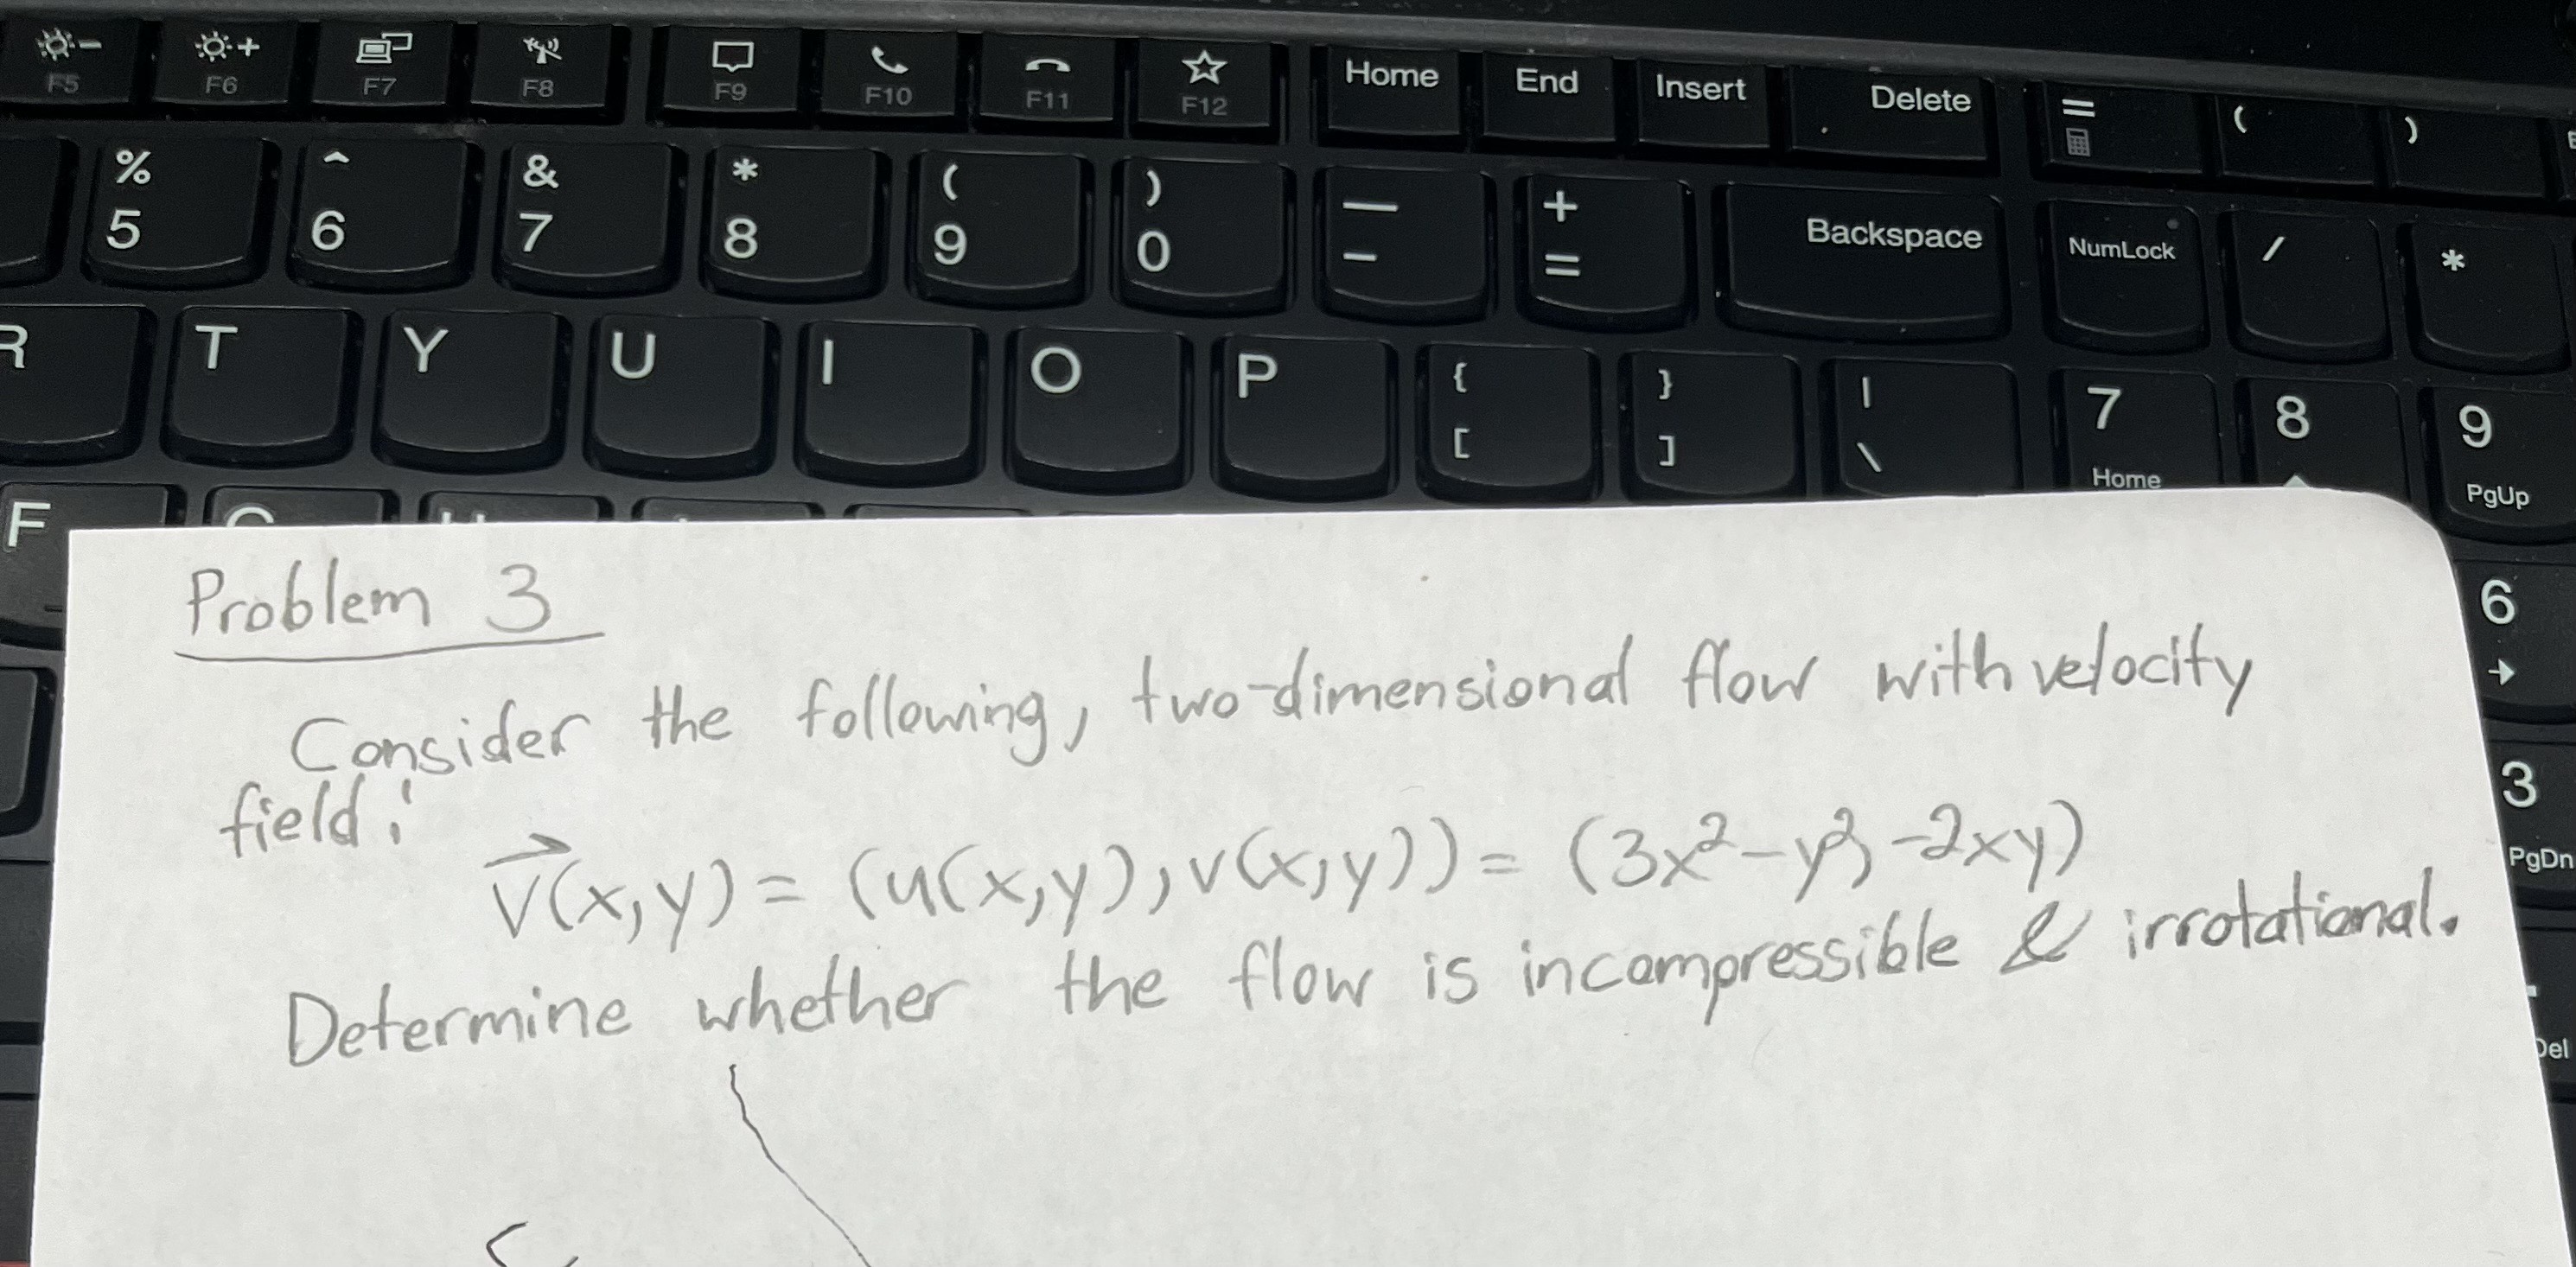 F5 F6 F7 F8 F9 F10 F11 F12 Home End Insert Delete = ( )
% ^ & * ( ) — + Backspace NumLock / *
5 6 7 8 9 0 - =
R T Y U I O P { } | 7 8 9
[ ] \ Home PgUp
F
6
3
PgDn
Del
Problem 3
Consider the following, two-dimensional flow with velocity
field:
V⃗(x,y) = (u(x,y), v(x,y)) = (3x²-y², -2xy)
Determine whether the flow is incompressible & irrotational.